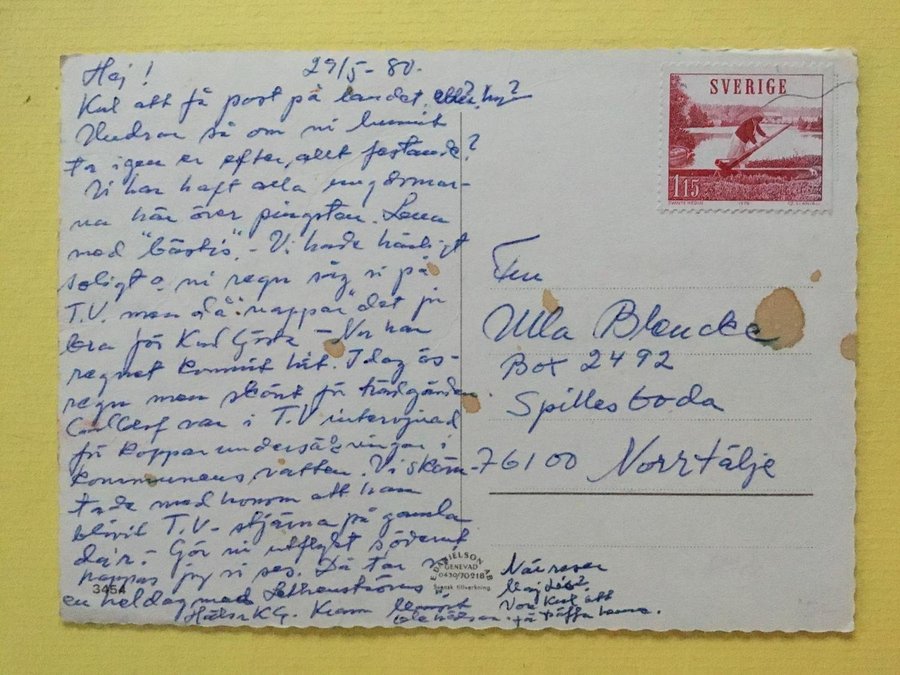 Hej! 29/5-80.
Kul att få post på landet, eller hur?
Undrar så om ni hunnit
ta igen er efter allt festande?
Vi har haft alla ungdomar-
na här över pingsten. Lena
med "bästis". - Vi hade härligt
soligt o. ni regn såg vi på
T.V. men då "nappar" det ju
bra för Karl Gösta - Nu har
regnet kommit hit. Idag ös-
regn men skönt för trädgården.
Carl Olof var i T.V. intervjuad
för kopparundersökningar i
kommunens vatten. Vi skäm-
tade med honom att han
blivit T.V.-stjärna på gamla
da'r. - Gör ni utflykt söderut
hoppas jag vi ses. Då tar vi
en heldag med
Hälsa KG. Kram
SVERIGE
115
Fru
Ulla Blencke
Box 2492
Spillesboda
76100 Norrtälje
När reser
Maj
Vore kul att
få träffa henne.
E. DANIELSON AB
GENEVAD
0430/70218
Svensk tillverkning
3454